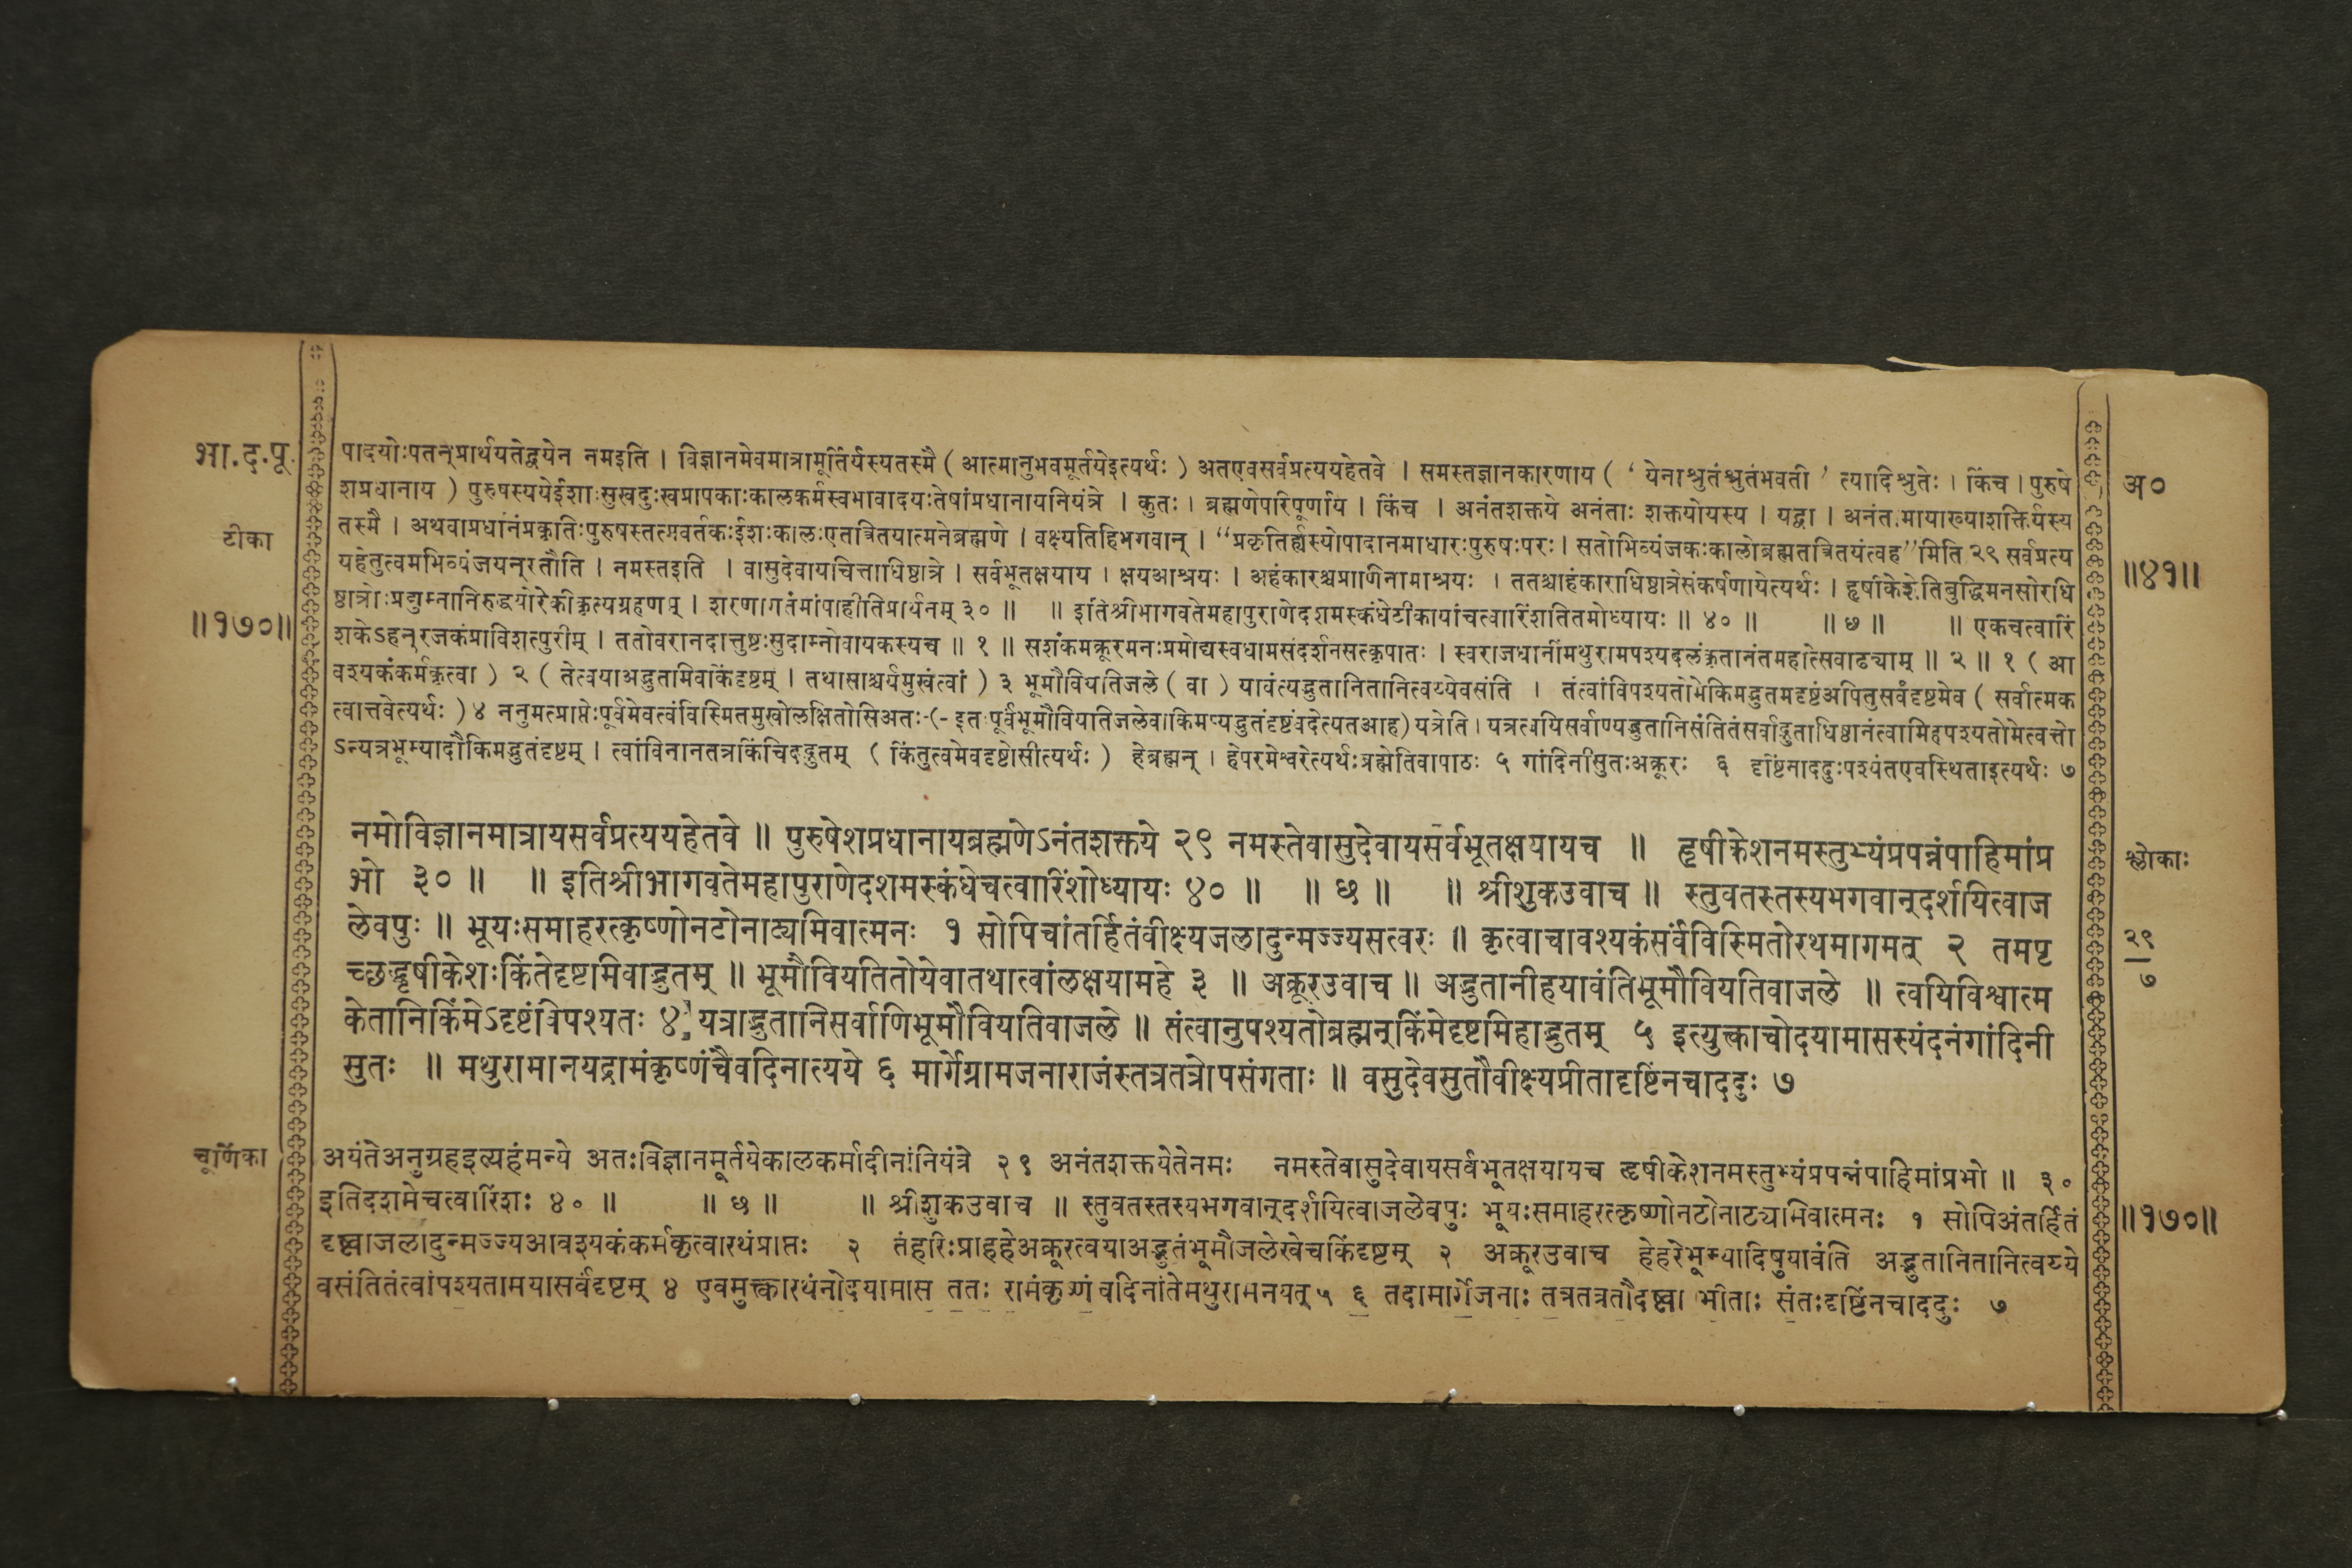 भा.द.पू.
टीका
॥१७०॥
पादयोःपतन्प्रार्थयतेद्वयेन नमइति । विज्ञानमेवमात्रामूर्तिर्यस्यतस्मै ( आत्मानुभवमूर्तयेइत्यर्थः ) अतएवसर्वप्रत्ययहेतवे । समस्तज्ञानकारणाय ( ‘ येनाश्रुतंश्रुतंभवती ’ त्यादिश्रुतेः । किंच । पुरुषे
शप्रधानाय ) पुरुषस्ययेईशाःसुखदुःखप्रापकाःकालकर्मस्वभावादयःतेषांप्रधानायनियंत्रे । कुतः । ब्रह्मणेपरिपूर्णाय । किंच । अनंतशक्तये अनंताः शक्तयोयस्य । यद्वा । अनंत मायाख्याशक्तिर्यस्य
तस्मै । अथवाप्रधानंप्रकृतिःपुरुषस्तत्प्रवर्तकःईशःकालःएतत्रितयात्मनेब्रह्मणे । वक्ष्यतिहिभगवान् । “प्रकृतिर्ह्यस्योपादानमाधारःपुरुषःपरः । सतोभिव्यंजकःकालोब्रह्मतत्रितयंत्वह”मिति २९ सर्वप्रत्य
यहेतुत्वमभिव्यंजयन्रतौति । नमस्तइति । वासुदेवायचित्ताधिष्ठात्रे । सर्वभूतक्षयाय । क्षयआश्रयः । अहंकारश्चप्राणिनामाश्रयः । ततश्चाहंकाराधिष्ठात्रेसंकर्षणायेत्यर्थः । हृषीकेशेतिबुद्धिमनसोरधि
ष्ठात्रोःप्रद्युम्नानिरुद्धयोरेकीकृत्यग्रहणम् । शरणागतंमांपाहीतिप्रार्थनम् ३० ॥ ॥ इतिश्रीभागवतेमहापुराणेदशमस्कंधेटीकायांचत्वारिंशतितमोध्यायः ॥ ४० ॥ ॥ छ ॥ ॥ एकचत्वारिं
शकेऽहन्रजकंप्राविशत्पुरीम् । ततोवरानदात्तुष्टःसुदाम्नोवायकस्यच ॥ १ ॥ सशंकमक्रूरमनःप्रमोद्यस्वधामसंदर्शनसत्कृपातः । स्वराजधानींमथुरामपश्यदलंकृतानंतमहोत्सवाढ्याम् ॥ २ ॥ १ ( आ
वश्यकंकर्मकृत्वा ) २ ( तेत्वयाअद्भुतमिवकिंदृष्टम् । तथासाश्चर्यमुखंत्वां ) ३ भूमौवियतिजले ( वा ) यावंत्यद्भुतानितानित्वय्येवसंति । तंत्वांविपश्यतोमेकिमद्भुतमदृष्टंअपितुसर्वंदृष्टमेव ( सर्वात्मक
त्वात्तवेत्यर्थः ) ४ ननुमत्प्राप्तेःपूर्वमेवत्वंविस्मितमुखोलक्षितोसिअतः-(- इतःपूर्वंभूमौवियतिजलेवाकिमप्यद्भुतंदृष्टंवदेत्यतआह) यत्रेति । यत्रत्वयिसर्वाण्यद्भुतानिसंतितंसर्वाद्भुताधिष्ठानंत्वामिहपश्यतोमेत्वत्तो
ऽन्यत्रभूम्यादौकिमद्भुतंदृष्टम् । त्वांविनानतत्रकिंचिदद्भुतम् ( किंतुत्वमेवदृष्टोसीत्यर्थः ) हेब्रह्मन् । हेपरमेश्वरेत्यर्थःब्रह्मेतिवापाठः ५ गांदिनीसुतःअक्रूरः ६ दृष्टिंनाददुःपश्यंतएवस्थिताइत्यर्थः ७
अ०
॥४१॥
नमोविज्ञानमात्रायसर्वप्रत्ययहेतवे ॥ पुरुषेशप्रधानायब्रह्मणेऽनंतशक्तये २९ नमस्तेवासुदेवायसर्वभूतक्षयायच ॥ हृषीकेशनमस्तुभ्यंप्रपन्नंपाहिमांप्र
भो ३० ॥ ॥ इतिश्रीभागवतेमहापुराणेदशमस्कंधेचत्वारिंशोध्यायः ४० ॥ ॥ छ ॥ ॥ श्रीशुकउवाच ॥ स्तुवतस्तस्यभगवान्दर्शयित्वाज
लेवपुः ॥ भूयःसमाहरत्कृष्णोनटोनाट्यमिवात्मनः १ सोपिचांतर्हितंवीक्ष्यजलादुन्मज्ज्यसत्वरः ॥ कृत्वाचावश्यकंसर्वंविस्मितोरथमागमत् २ तमपृ
च्छद्धृषीकेशःकिंतेदृष्टमिवाद्भुतम् ॥ भूमौवियतितोयेवातथात्वांलक्षयामहे ३ ॥ अक्रूरउवाच ॥ अद्भुतानीहयावंतिभूमौवियतिवाजले ॥ त्वयिविश्वात्म
केतानिकिंमेऽदृष्टंविपश्यतः ४ यत्राद्भुतानिसर्वाणिभूमौवियतिवाजले ॥ तंत्वानुपश्यतोब्रह्मन्किंमेदृष्टमिहाद्भुतम् ५ इत्युक्त्वाचोदयामासस्यंदनंगांदिनी
सुतः ॥ मथुरामानयद्रामंकृष्णंचैवदिनात्यये ६ मार्गेग्रामजनाराजंस्तत्रतत्रोपसंगताः ॥ वसुदेवसुतौवीक्ष्यप्रीतादृष्टिंनचाददुः ७
श्लोकाः
२९
७
चूर्णिका
अयंतेअनुग्रहइत्यहंमन्ये अतःविज्ञानमूर्तयेकालकर्मादीनांनियंत्रे २९ अनंतशक्तयेतेनमः नमस्तेवासुदेवायसर्वभूतक्षयायच हृषीकेशनमस्तुभ्यंप्रपन्नंपाहिमांप्रभो ॥ ३०
इतिदशमेचत्वारिंशः ४० ॥ ॥ छ ॥ ॥ श्रीशुकउवाच ॥ स्तुवतस्तस्यभगवान्दर्शयित्वाजलेवपुः भूयःसमाहरत्कृष्णोनटोनाट्यमिवात्मनः १ सोपिअंतर्हितं
दृष्ट्वाजलादुन्मज्ज्यआवश्यकंकर्मकृत्वारथंप्राप्तः २ तंहरिःप्राहहेअक्रूरत्वयाअद्भुतंभूमौजलेखेचकिंदृष्टम् ३ अक्रूरउवाच हेहरेभूम्यादिषुयावंति अद्भुतानितानित्वय्ये
वसंतितंत्वांपश्यतामयासर्वंदृष्टम् ४ एवमुक्त्वारथंनोदयामास ततः रामंकृष्णं वदिनांतेमथुरामनयत् ५ ६ तदामार्गेजनाः तत्रतत्रतौदृष्ट्वा प्रीताः संतःदृष्टिंनचाददुः ७
॥१७०॥